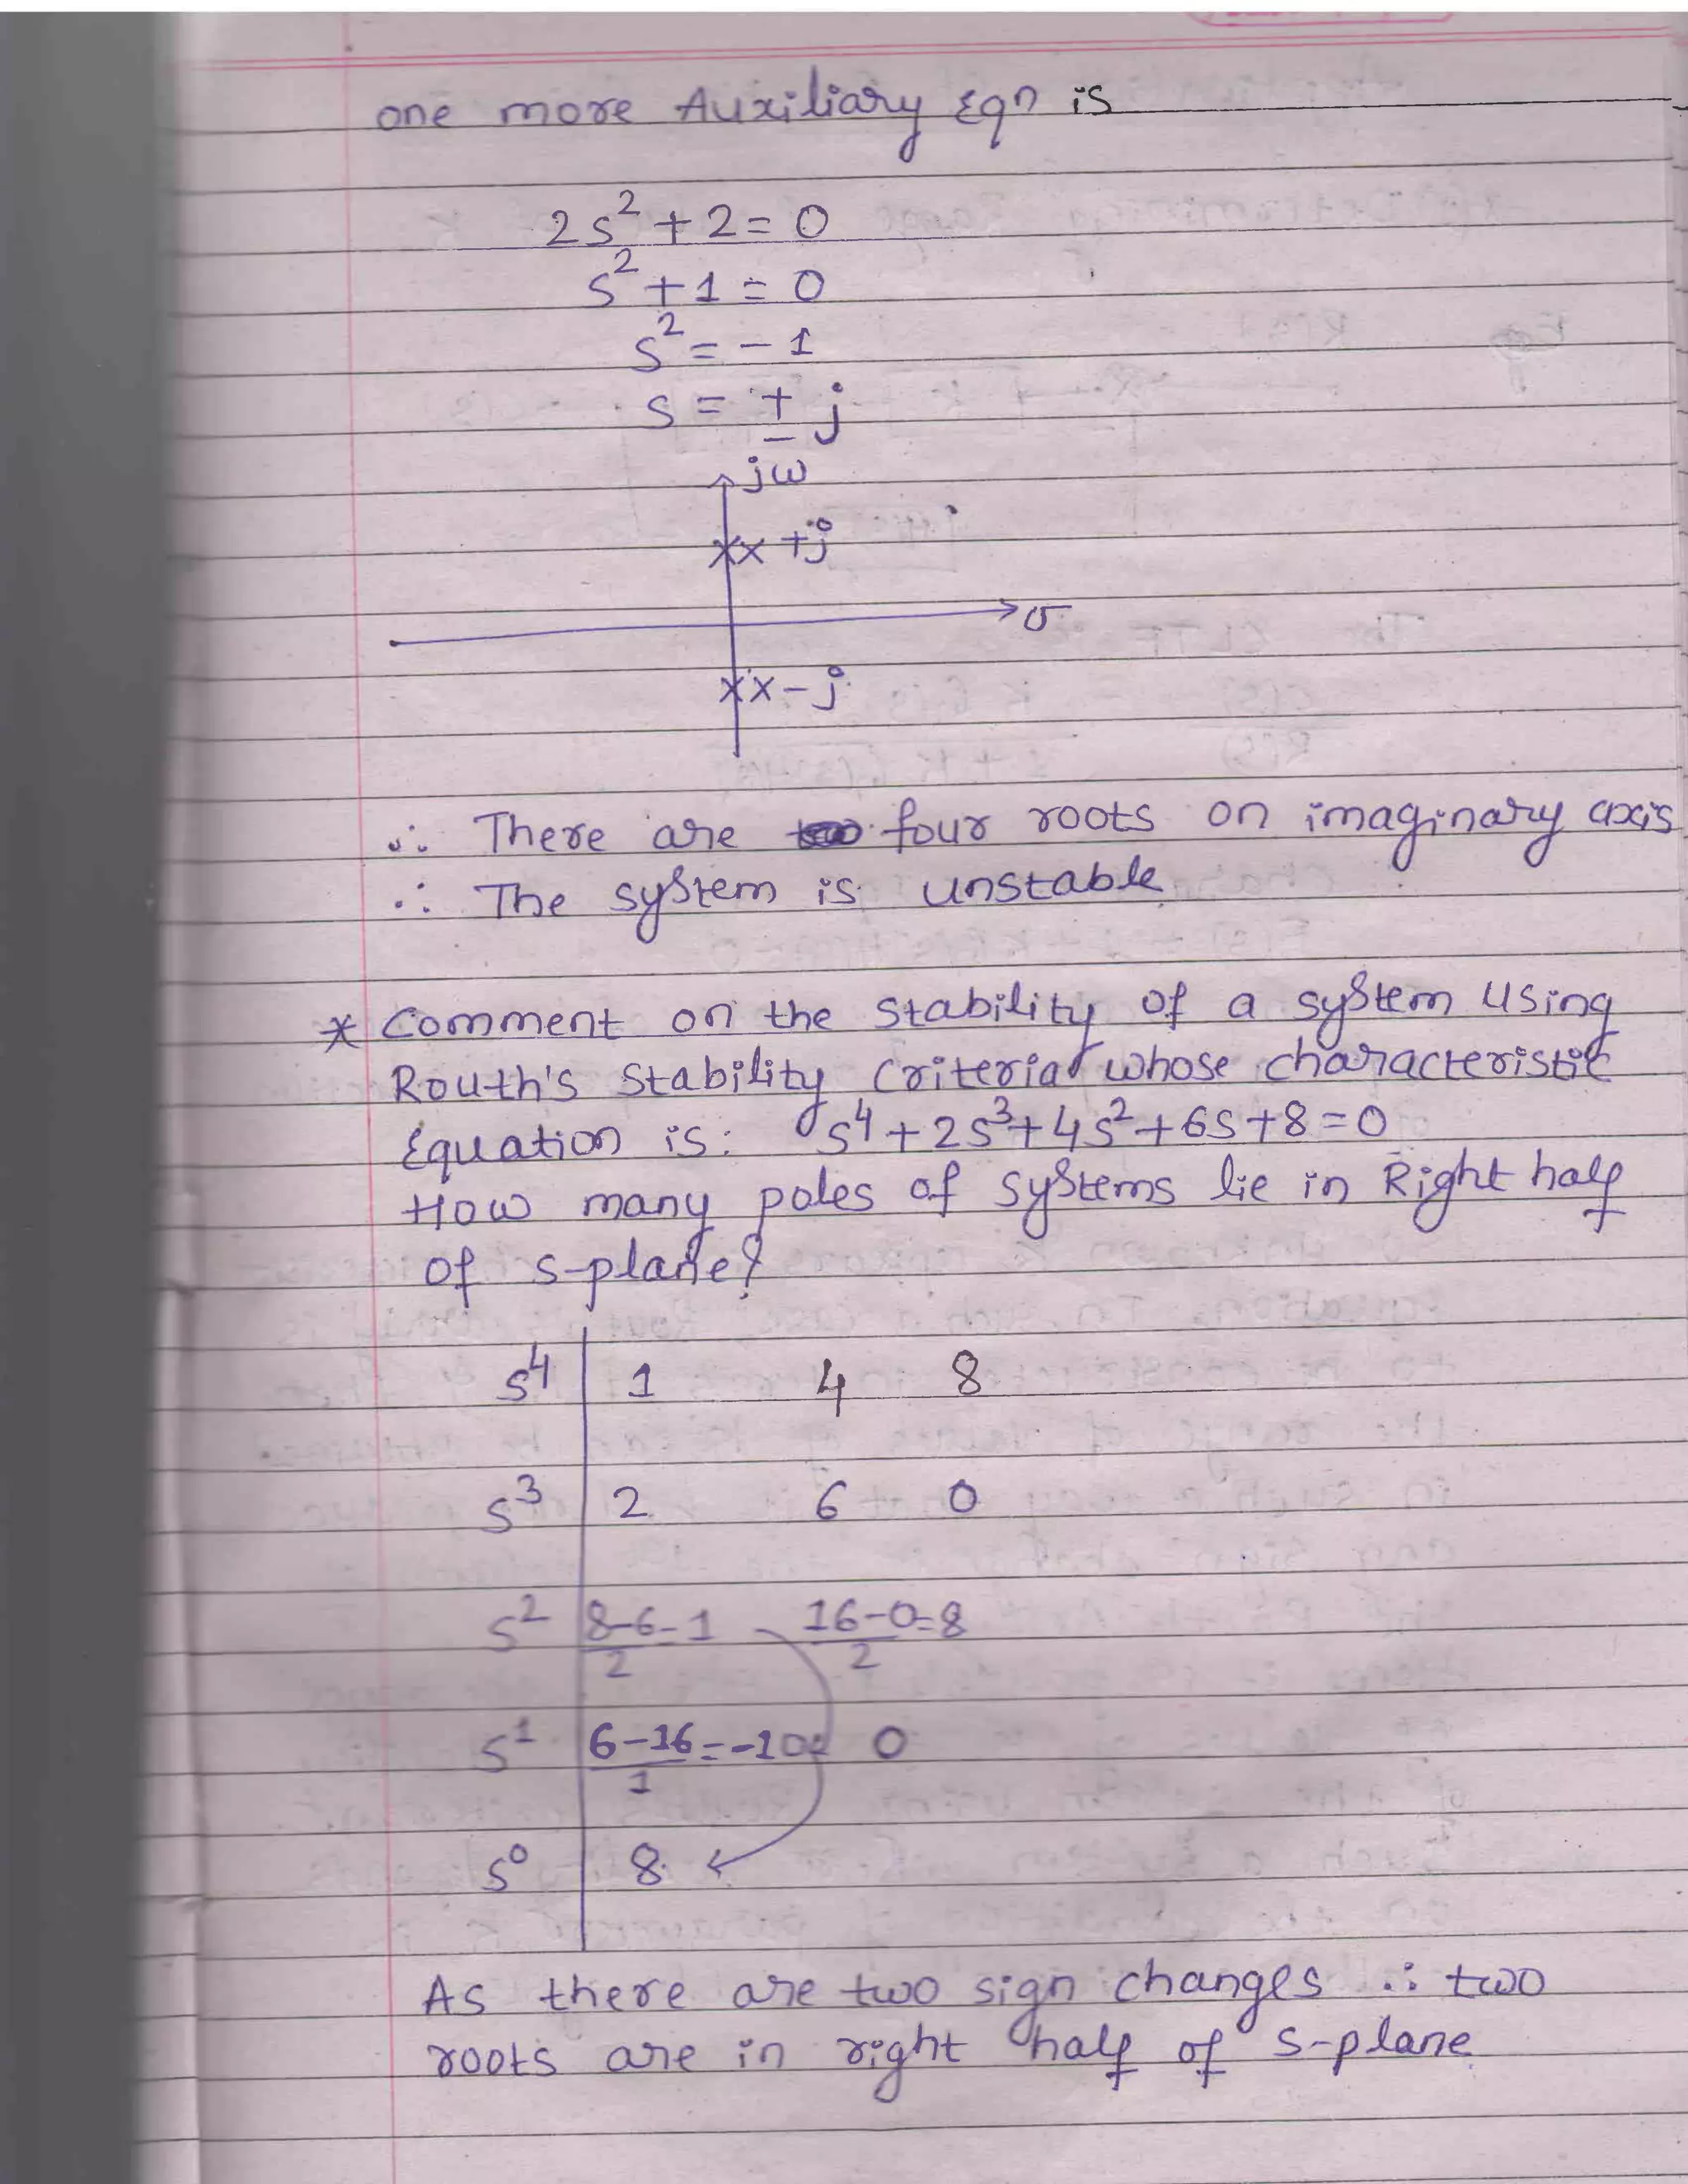 one more Auxiliary Eqn is
2s² + 2 = 0
s² + 1 = 0
s² = - 1
s = ± j
jω
xx +j
σ
xx - j
∴ There are four roots on imaginary axis
∴ The system is unstable
* Comment on the stability of a system using
Routh's Stability Criteria whose characteristic
Equation is: s⁴ + 2s³ + 4s² + 6s + 8 = 0
How many poles of systems lie in Right half
of s-plane?
s⁴ 1 4 8
s³ 2 6 0
s² 8-6/2 = 1 16-0/2 = 8
s¹ 6-16/1 = -10 0
s⁰ 8
As there are two sign changes ∴ two
roots are in right half of s-plane